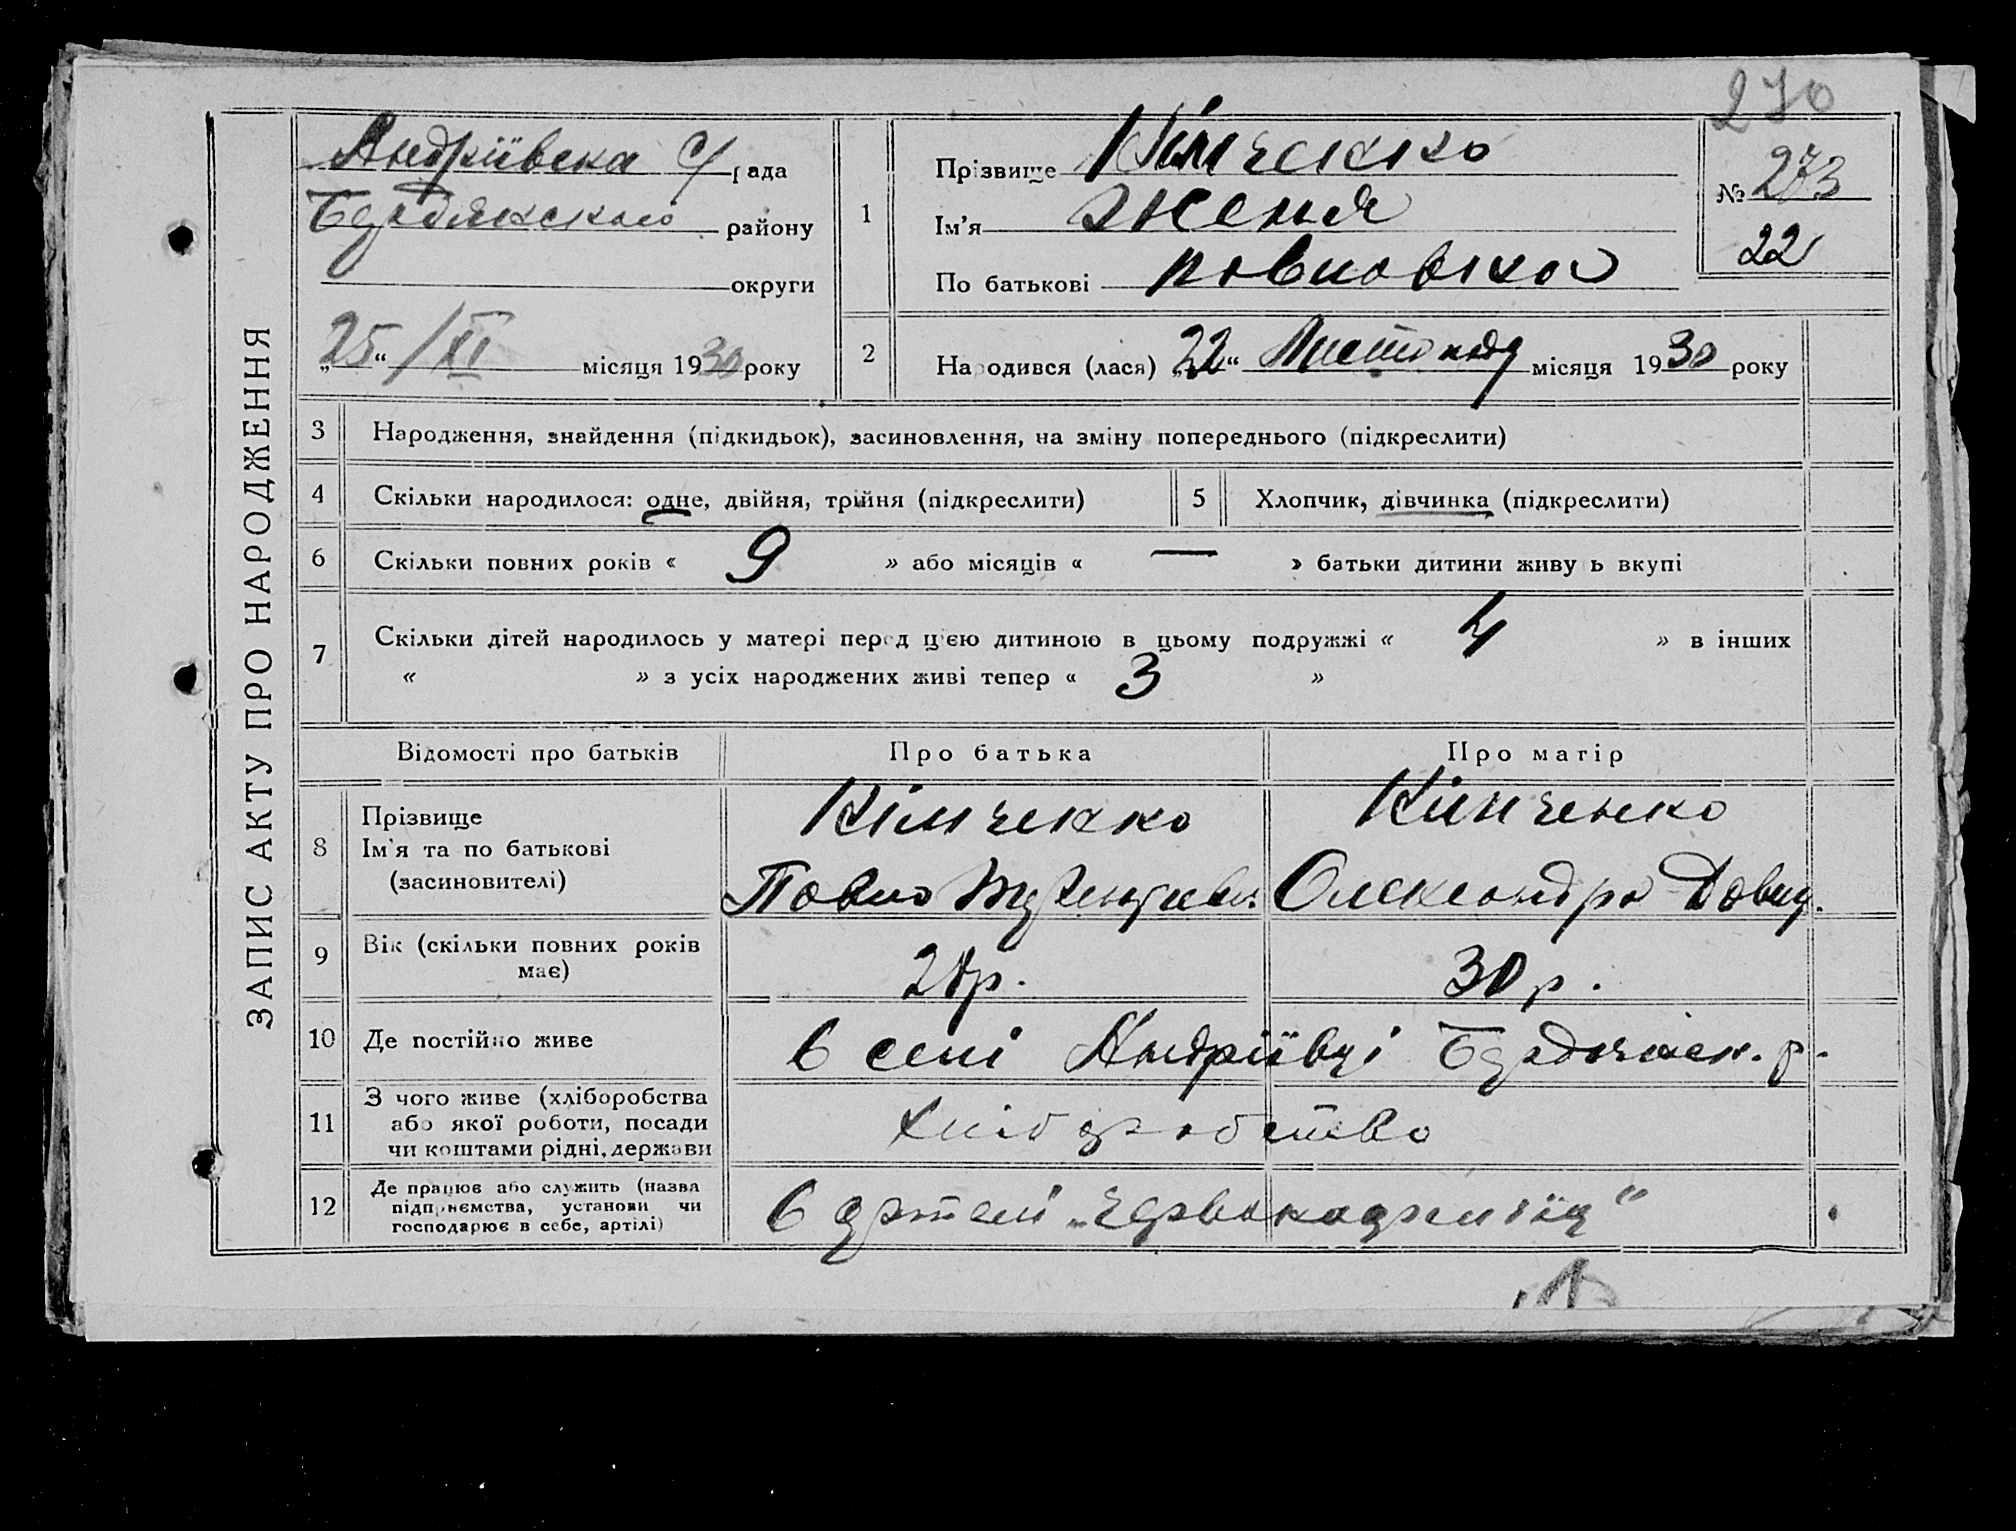 270
ЗАПИС АКТУ ПРО НАРОДЖЕННЯ
Андріївска С/рада
району
округи
"25" /XI місяця 1930 року
1
Прізвище Кімченко
Ім'я Женя
По батькові Повловна
№ 273
22
2
Народився (лася) "22" Листопада місяця 1930 року
3 Народження, знайдення (підкидьок), засиновлення, на зміну попереднього (підкреслити)
4 Скільки народилося: одне, двійня, трійня (підкреслити)
5 Хлопчик, дівчинка (підкреслити)
6 Скільки повних років « 9 » або місяців « — » батьки дитини живуть вкупі
7 Скільки дітей народилось у матері перед цією дитиною в цьому подружжі « 4 » в інших
« » з усіх народжених живі тепер « 3 »
Відомості про батьків
Про батька
Про матір
8 Прізвище
Ім'я та по батькові
(засиновителі)
Кімченко
Повло
Кімченко
Олександра Довид.
9 Вік (скільки повних років
має)
28р.
30 р.
10 Де постійно живе
в селі Андріївці
11 З чого живе (хліборобства
або якої роботи, посади
чи коштами рідні, держави
хліборобство
12 Де працює або служить (назва
підприємства, установи чи
господарює в себе, артілі)
в артелі